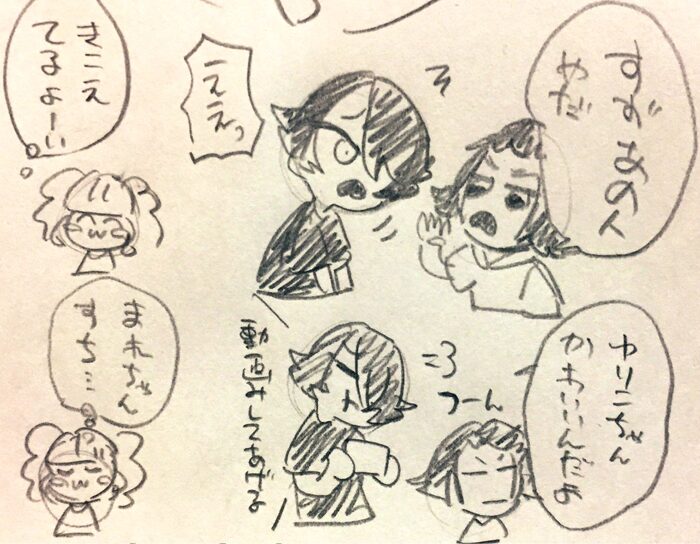 すずあの人
やだ
ええっ
きこえ
てるよーい
ゆりこちゃん
かわいいんだよ
つーん
動画みしてあげる
まれちゃん
すち…